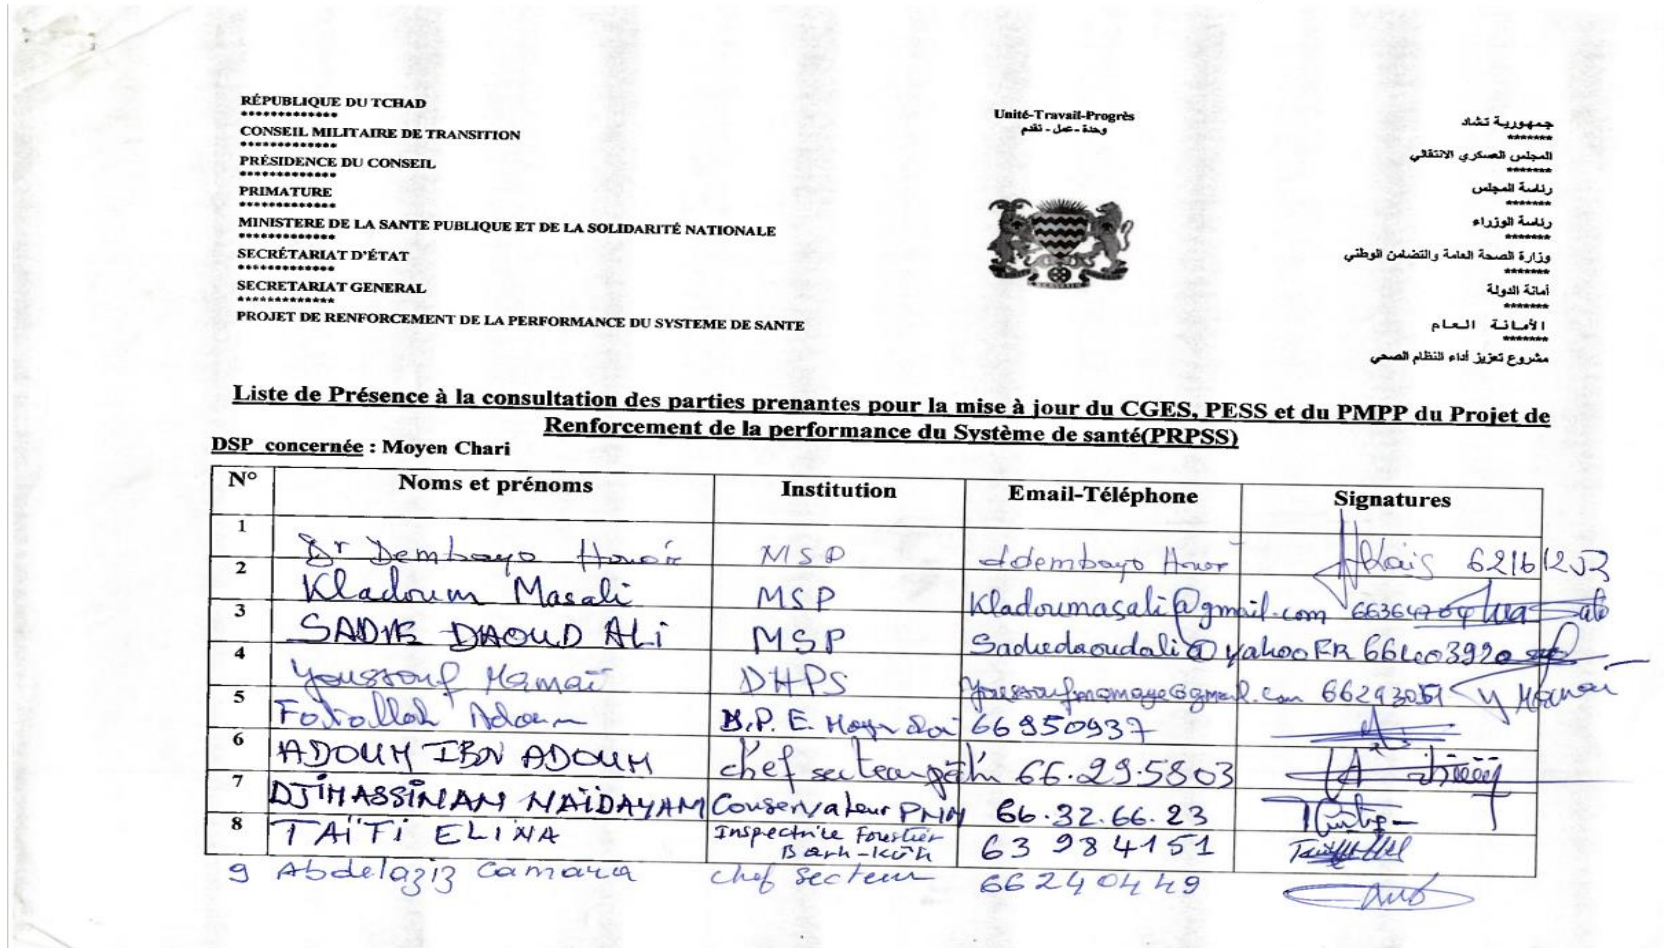 RÉPUBLIQUE DU TCHAD
*************
CONSEIL MILITAIRE DE TRANSITION
*************
PRÉSIDENCE DU CONSEIL
*************
PRIMATURE
*************
MINISTERE DE LA SANTE PUBLIQUE ET DE LA SOLIDARITÉ NATIONALE
*************
SECRÉTARIAT D'ÉTAT
*************
SECRETARIAT GENERAL
*************
PROJET DE RENFORCEMENT DE LA PERFORMANCE DU SYSTEME DE SANTE
Unité-Travail-Progrès
وحدة - عمل - تقدم
جمهورية تشاد
*******
المجلس العسكري الانتقالي
*******
رئاسة المجلس
*******
رئاسة الوزراء
*******
وزارة الصحة العامة والتضامن الوطني
*******
أمانة الدولة
*******
الأمانة العام
*******
مشروع تعزيز أداء النظام الصحي
Liste de Présence à la consultation des parties prenantes pour la mise à jour du CGES, PESS et du PMPP du Projet de
Renforcement de la performance du Système de santé(PRPSS)
DSP concernée : Moyen Chari
N° Noms et prénoms Institution Email-Téléphone Signatures
1 Dr Dembayo MSP
2 Kladoum Masali MSP Kladoumasali@gmail.com
3 SADIE DAOUD ALI MSP
4 Youssouf DHPS
5 Adoum 66950937
6 ADOUM IBN ADOUM chef secteur 66.29.5803
7 DJIMASSINAM NAÏDAYAM Conservateur PNM 66.32.66.23
8 TAÏTI ELINA Inspectrice Forestier 63984151
9 Abdelaziz Camara chef secteur 66240449